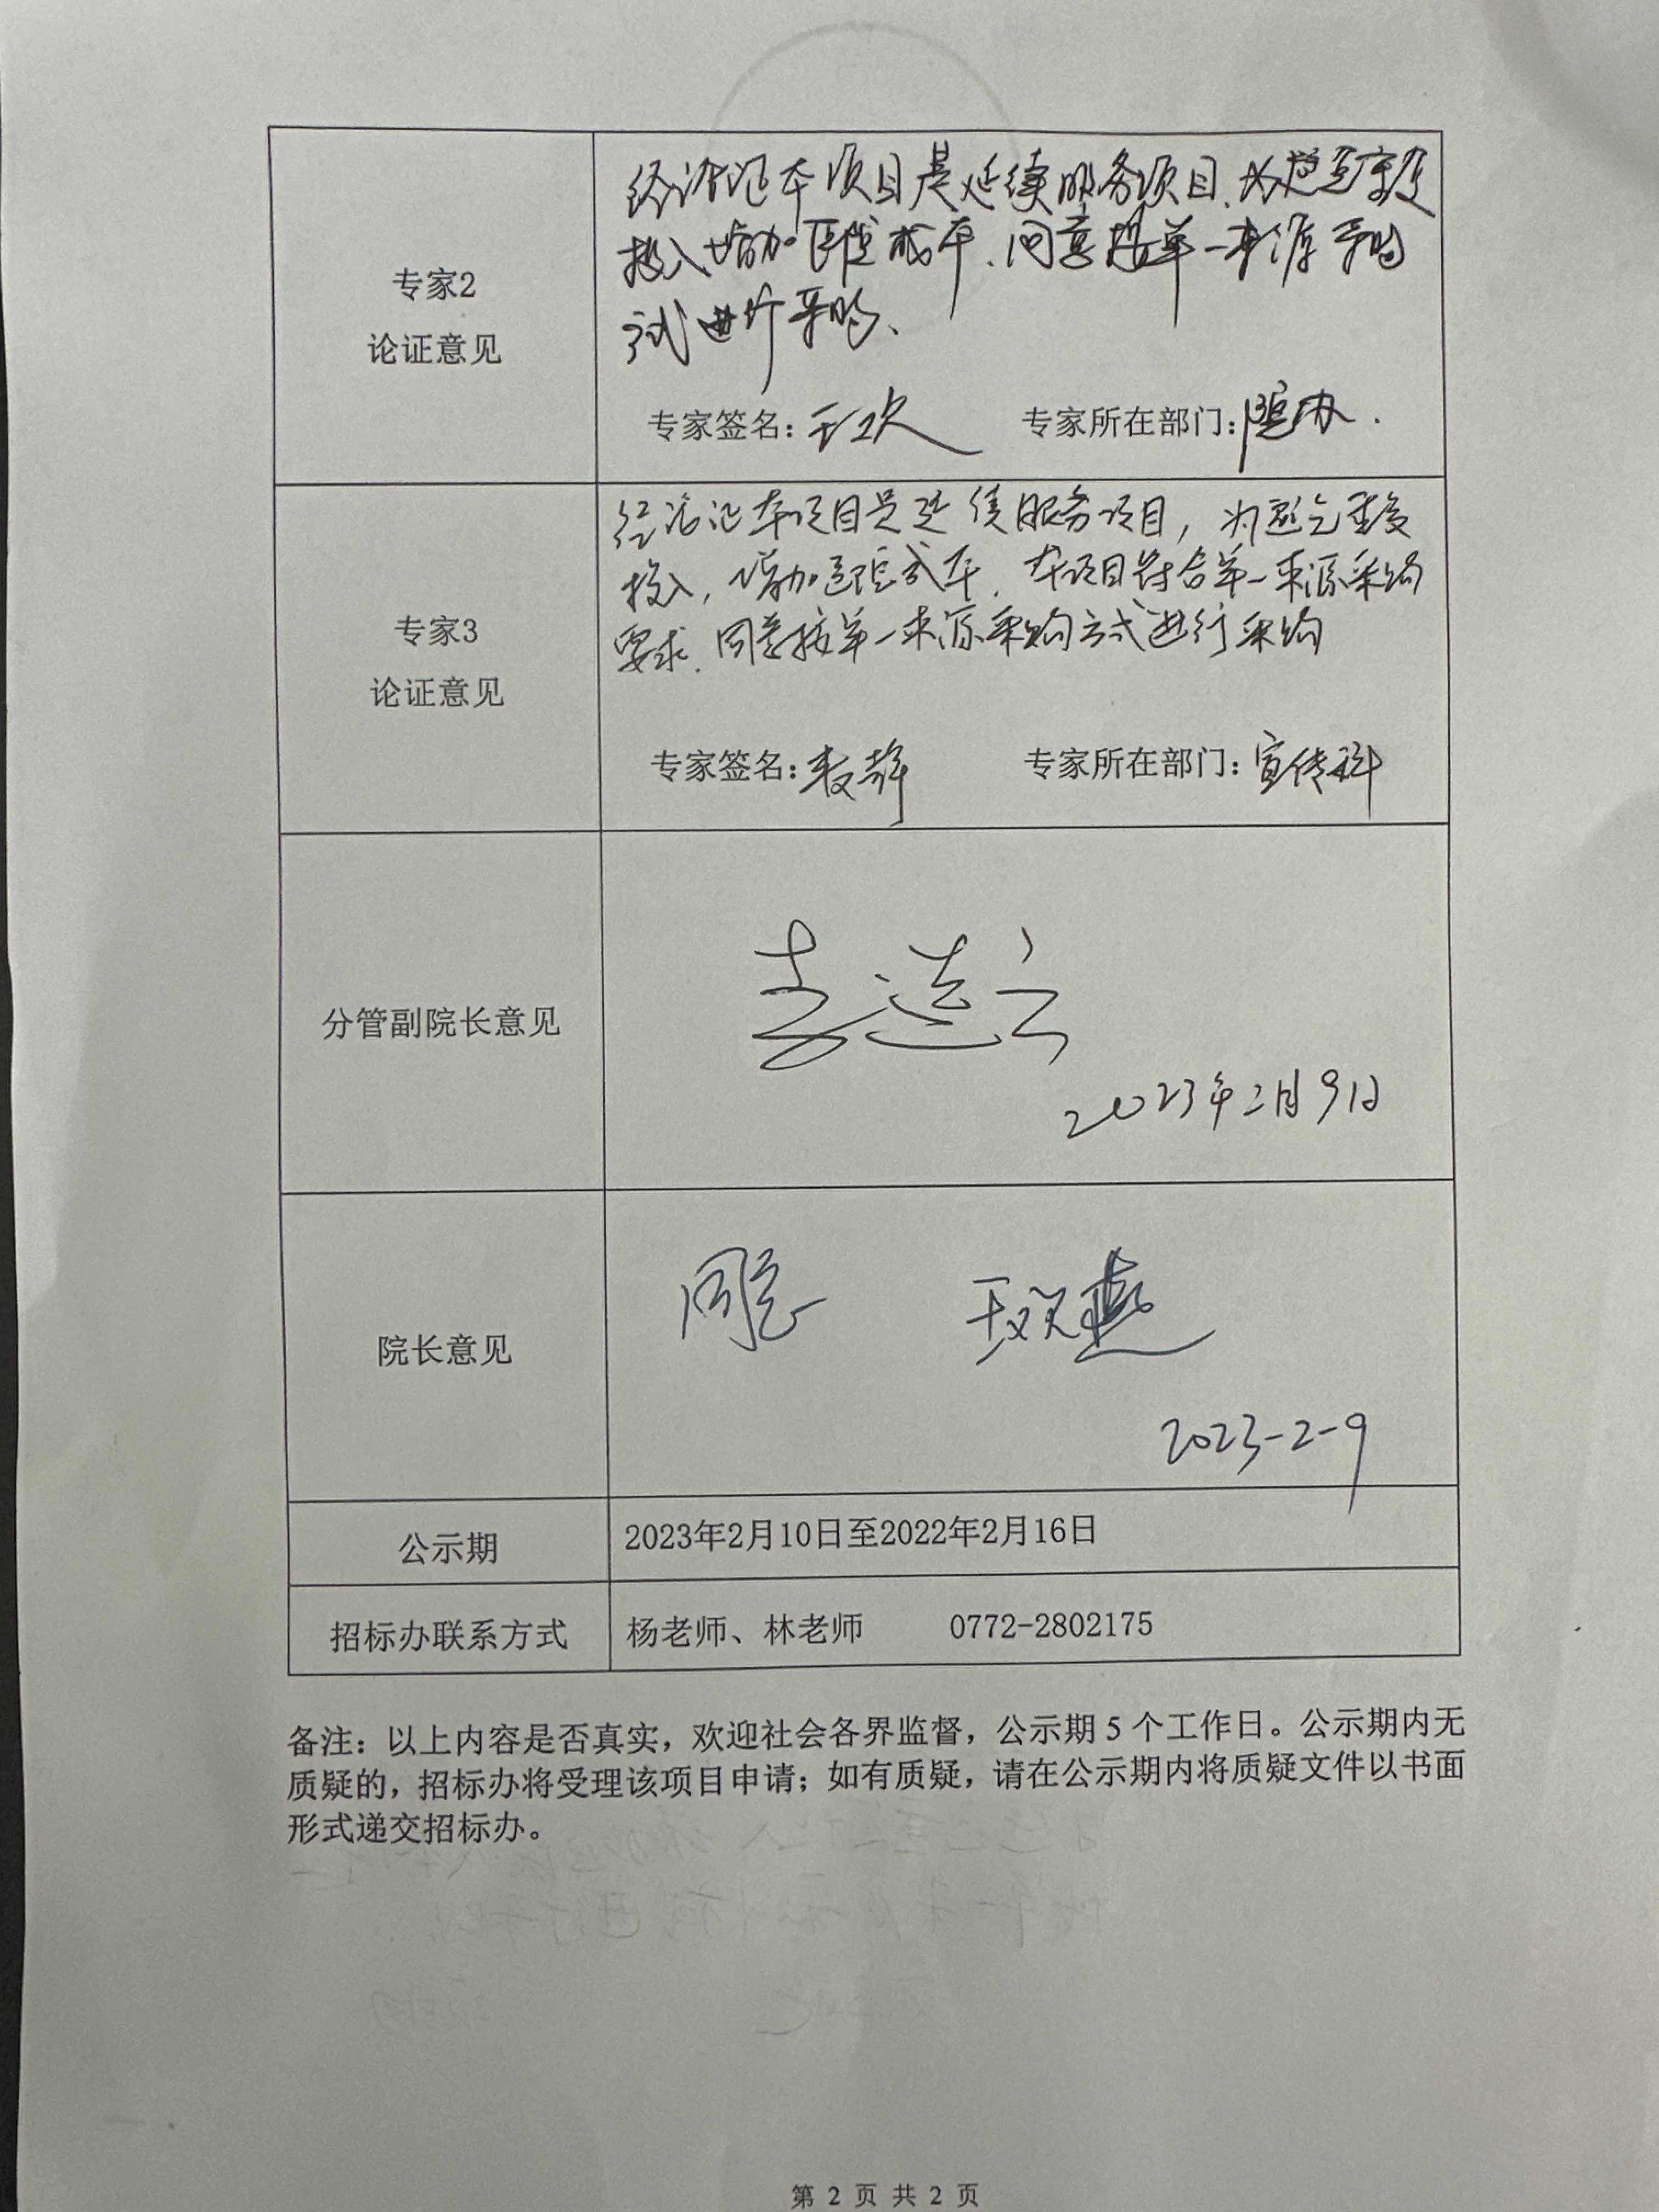 经论证本项目是延续服务项目.为避免重复
投入增加医院成本.同意按单一来源采购
方式进行采购、
专家2
论证意见
专家签名: 专家所在部门:院办.
经论证本项目是延续服务项目,为避免重复
投入,增加医院成本.本项目符合单一来源采购
要求.同意按单一来源采购方式进行采购
专家3
论证意见
专家签名: 专家所在部门:宣传科
分管副院长意见
2023年2月9日
院长意见
同意
2023-2-9
公示期
2023年2月10日至2022年2月16日
招标办联系方式
杨老师、林老师 0772-2802175
备注：以上内容是否真实，欢迎社会各界监督，公示期 5 个工作日。公示期内无
质疑的，招标办将受理该项目申请；如有质疑，请在公示期内将质疑文件以书面
形式递交招标办。
第 2 页 共 2 页